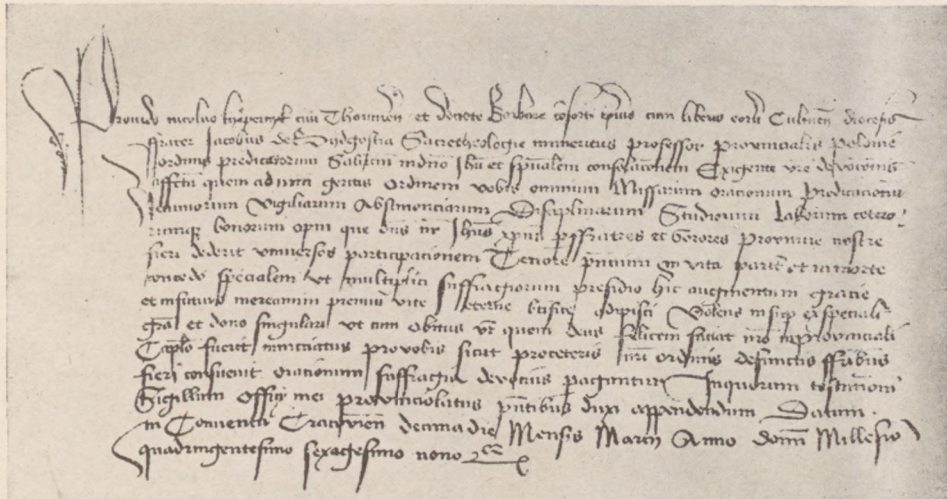 Provido nicolao koppernyk civi Thorunien et devote Barbare cosorti ipius cum liberis eoru Culmen diocesis
ffrater Jacobus de Bydgostia Sacretheologie inmeritus professor provincialis Polonie
ordinis predicatorum Salutem in dno Ihu et spualem consolacionem Exigente vre devocionis
affectu quem ad nrm geritis Ordinem vobis omnium Missarum Orationum Predicationu
Jeiuniorum Vigiliarum Abstinenciarum Disciplinarum Studiorum Laborum cetero
rumq bonorum opm que dns nr Ihus xpus p ffratres et Sorores Provincie nostre
fieri dederit universos participacionem Tenore pntium in vita parit et in morte
concedo specialem ut multiplici suffragiorum presidio hic augmentum gracie
et in futuro mereamini premiu vite eterne btifice adipisci Volens insup ex speciali
gra et dono singulari ut cum obitus vr quem deus felicem faciat nro in provinciali
Caplo fuerit nunciatus pro vobis sicut pro ceteris nri ordinis defunctis ffribus
fieri consuevit orationum suffragia devocius pagantur In quorum testimoni
Sigillum officy mei provincialatus pntibus duxi appendendum Datum
in Conventu Cracovien decima die Mensis Marcii Anno domi Millesio
quadringentesimo sexagesimo nono